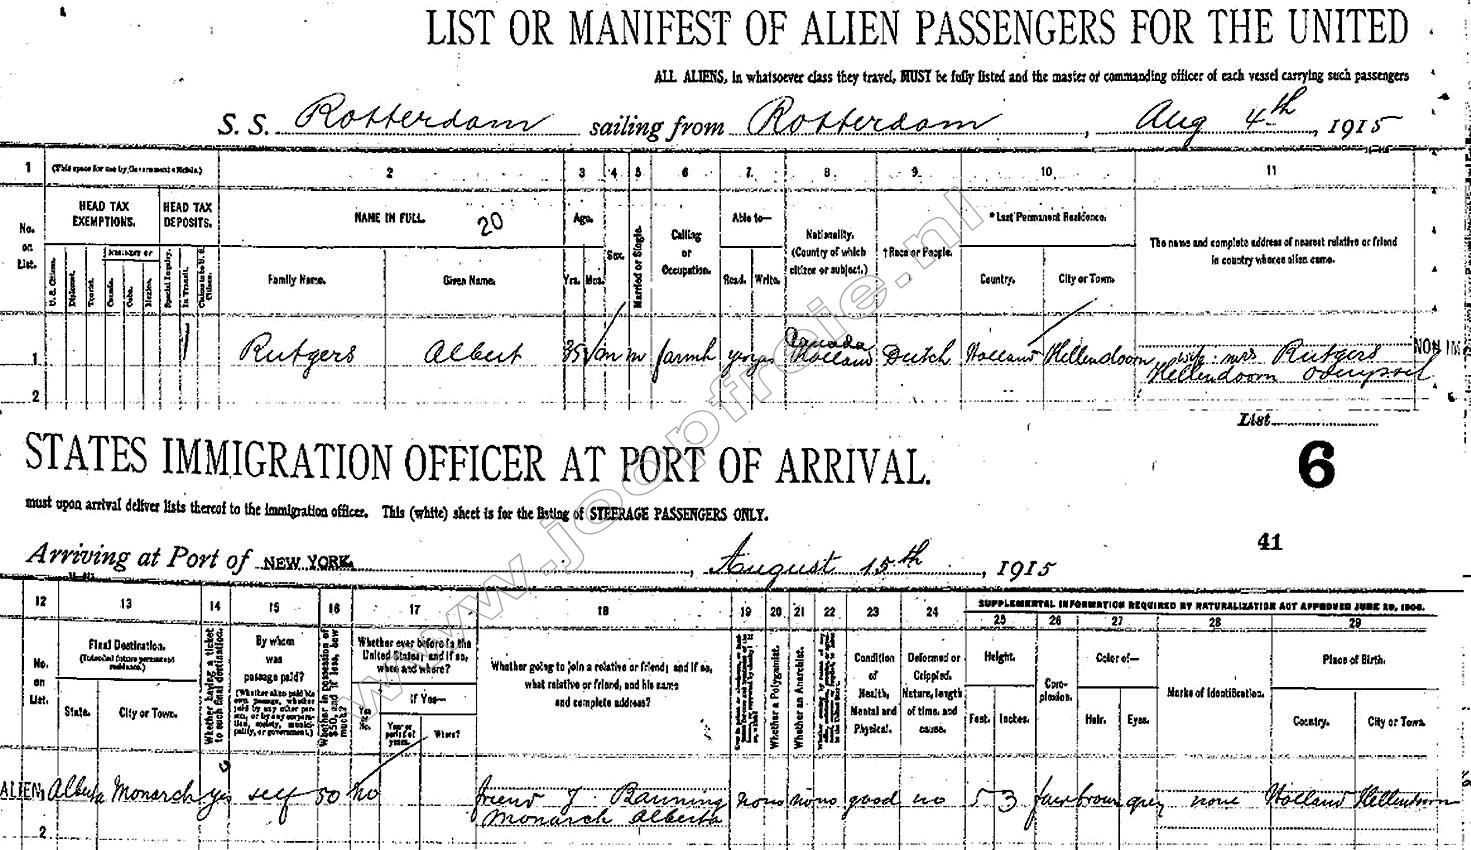 LIST OR MANIFEST OF ALIEN PASSENGERS FOR THE UNITED
ALL ALIENS, in whatsoever class they travel, MUST be fully listed and the master or commanding officer of each vessel carrying such passengers
S. S. Rotterdam sailing from Rotterdam, Aug 4th, 1915
1 (This space for use by Government officials.) 2 3 4 5 6 7 8 9 10 11
No. on List.
HEAD TAX EXEMPTIONS.
U. S. Citizens.
Diplomat.
Tourist.
Canada.
Cuba.
Mexico.
HEAD TAX DEPOSITS.
Special Inquiry.
In Transit.
NAME IN FULL. 20
Family Name. Given Name.
Age.
Yrs. Mos.
Sex.
Married or Single.
Calling or Occupation.
Able to—
Read. Write.
Nationality. (Country of which citizen or subject.)
†Race or People.
*Last Permanent Residence.
Country. City or Town.
The name and complete address of nearest relative or friend in country whence alien came.
1 Rutgers Albert 35 m m farmh yes yes Canada Holland Dutch Holland Hellendoorn wife mrs Rutgers
Hellendoorn
NON IM
2
List
STATES IMMIGRATION OFFICER AT PORT OF ARRIVAL. 6
must upon arrival deliver lists thereof to the immigration officer. This (white) sheet is for the listing of STEERAGE PASSENGERS ONLY.
41
Arriving at Port of NEW YORK, August 15th, 1915
12 13 14 15 16 17 18 19 20 21 22 23 24 SUPPLEMENTAL INFORMATION REQUIRED BY NATURALIZATION ACT APPROVED JUNE 29, 1906.
25 26 27 28 29
No. on List.
Final Destination.
(Intended future permanent residence.)
State. City or Town.
Whether having a ticket to such final destination.
By whom was passage paid?
Whether in possession of $50, and if less, how much?
Whether ever before in the United States; and if so, when and where?
Yes or No
If Yes—
Year or period of years. Where?
Whether going to join a relative or friend; and if so, what relative or friend, and his name and complete address?
Whether a Polygamist.
Whether an Anarchist.
Condition of Health, Mental and Physical.
Deformed or Crippled. Nature, length of time, and cause.
Height.
Feet. Inches.
Complexion.
Color of—
Hair. Eyes.
Marks of Identification.
Place of Birth.
Country. City or Town.
ALIEN 1 Alberta Monarch yes self 50 no friend J. Banning no no no no good no 5 3 fair brown grey none Holland Hellendoorn
Monarch Alberta
2
www.joopfreie.nl